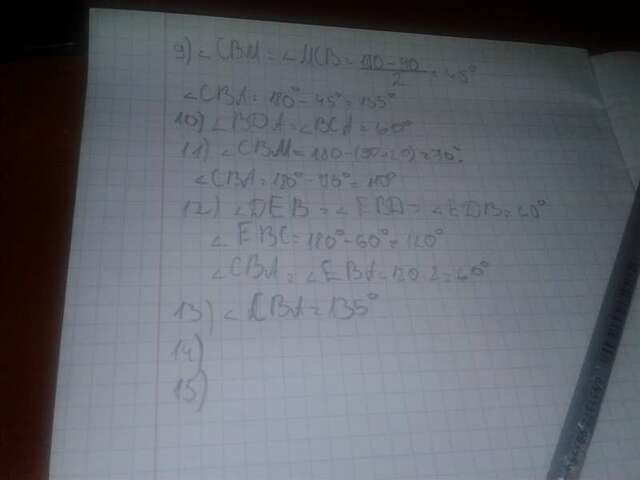 9) ∠CBM = ∠MCB = 180-90/2 = 45°
∠CBA = 180° - 45° = 135°
10) ∠BDA = ∠BCA = 60°
11) ∠CBM = 180 - (90+20) = 70°
∠CBA = 180° - 70° = 110°
12) ∠DEB = ∠EBD = ∠EDB = 60°
∠EBC = 180° - 60° = 120°
∠CBA = ∠EBA = 120:2 = 60°
13) ∠CBA = 135°
14)
15)